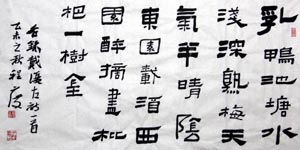 乳鴨池塘水
淺深熟梅天
氣半晴陰
東園載酒西
園醉摘盡枇
杷一樹金
戴復古詩一首
乙未之秋